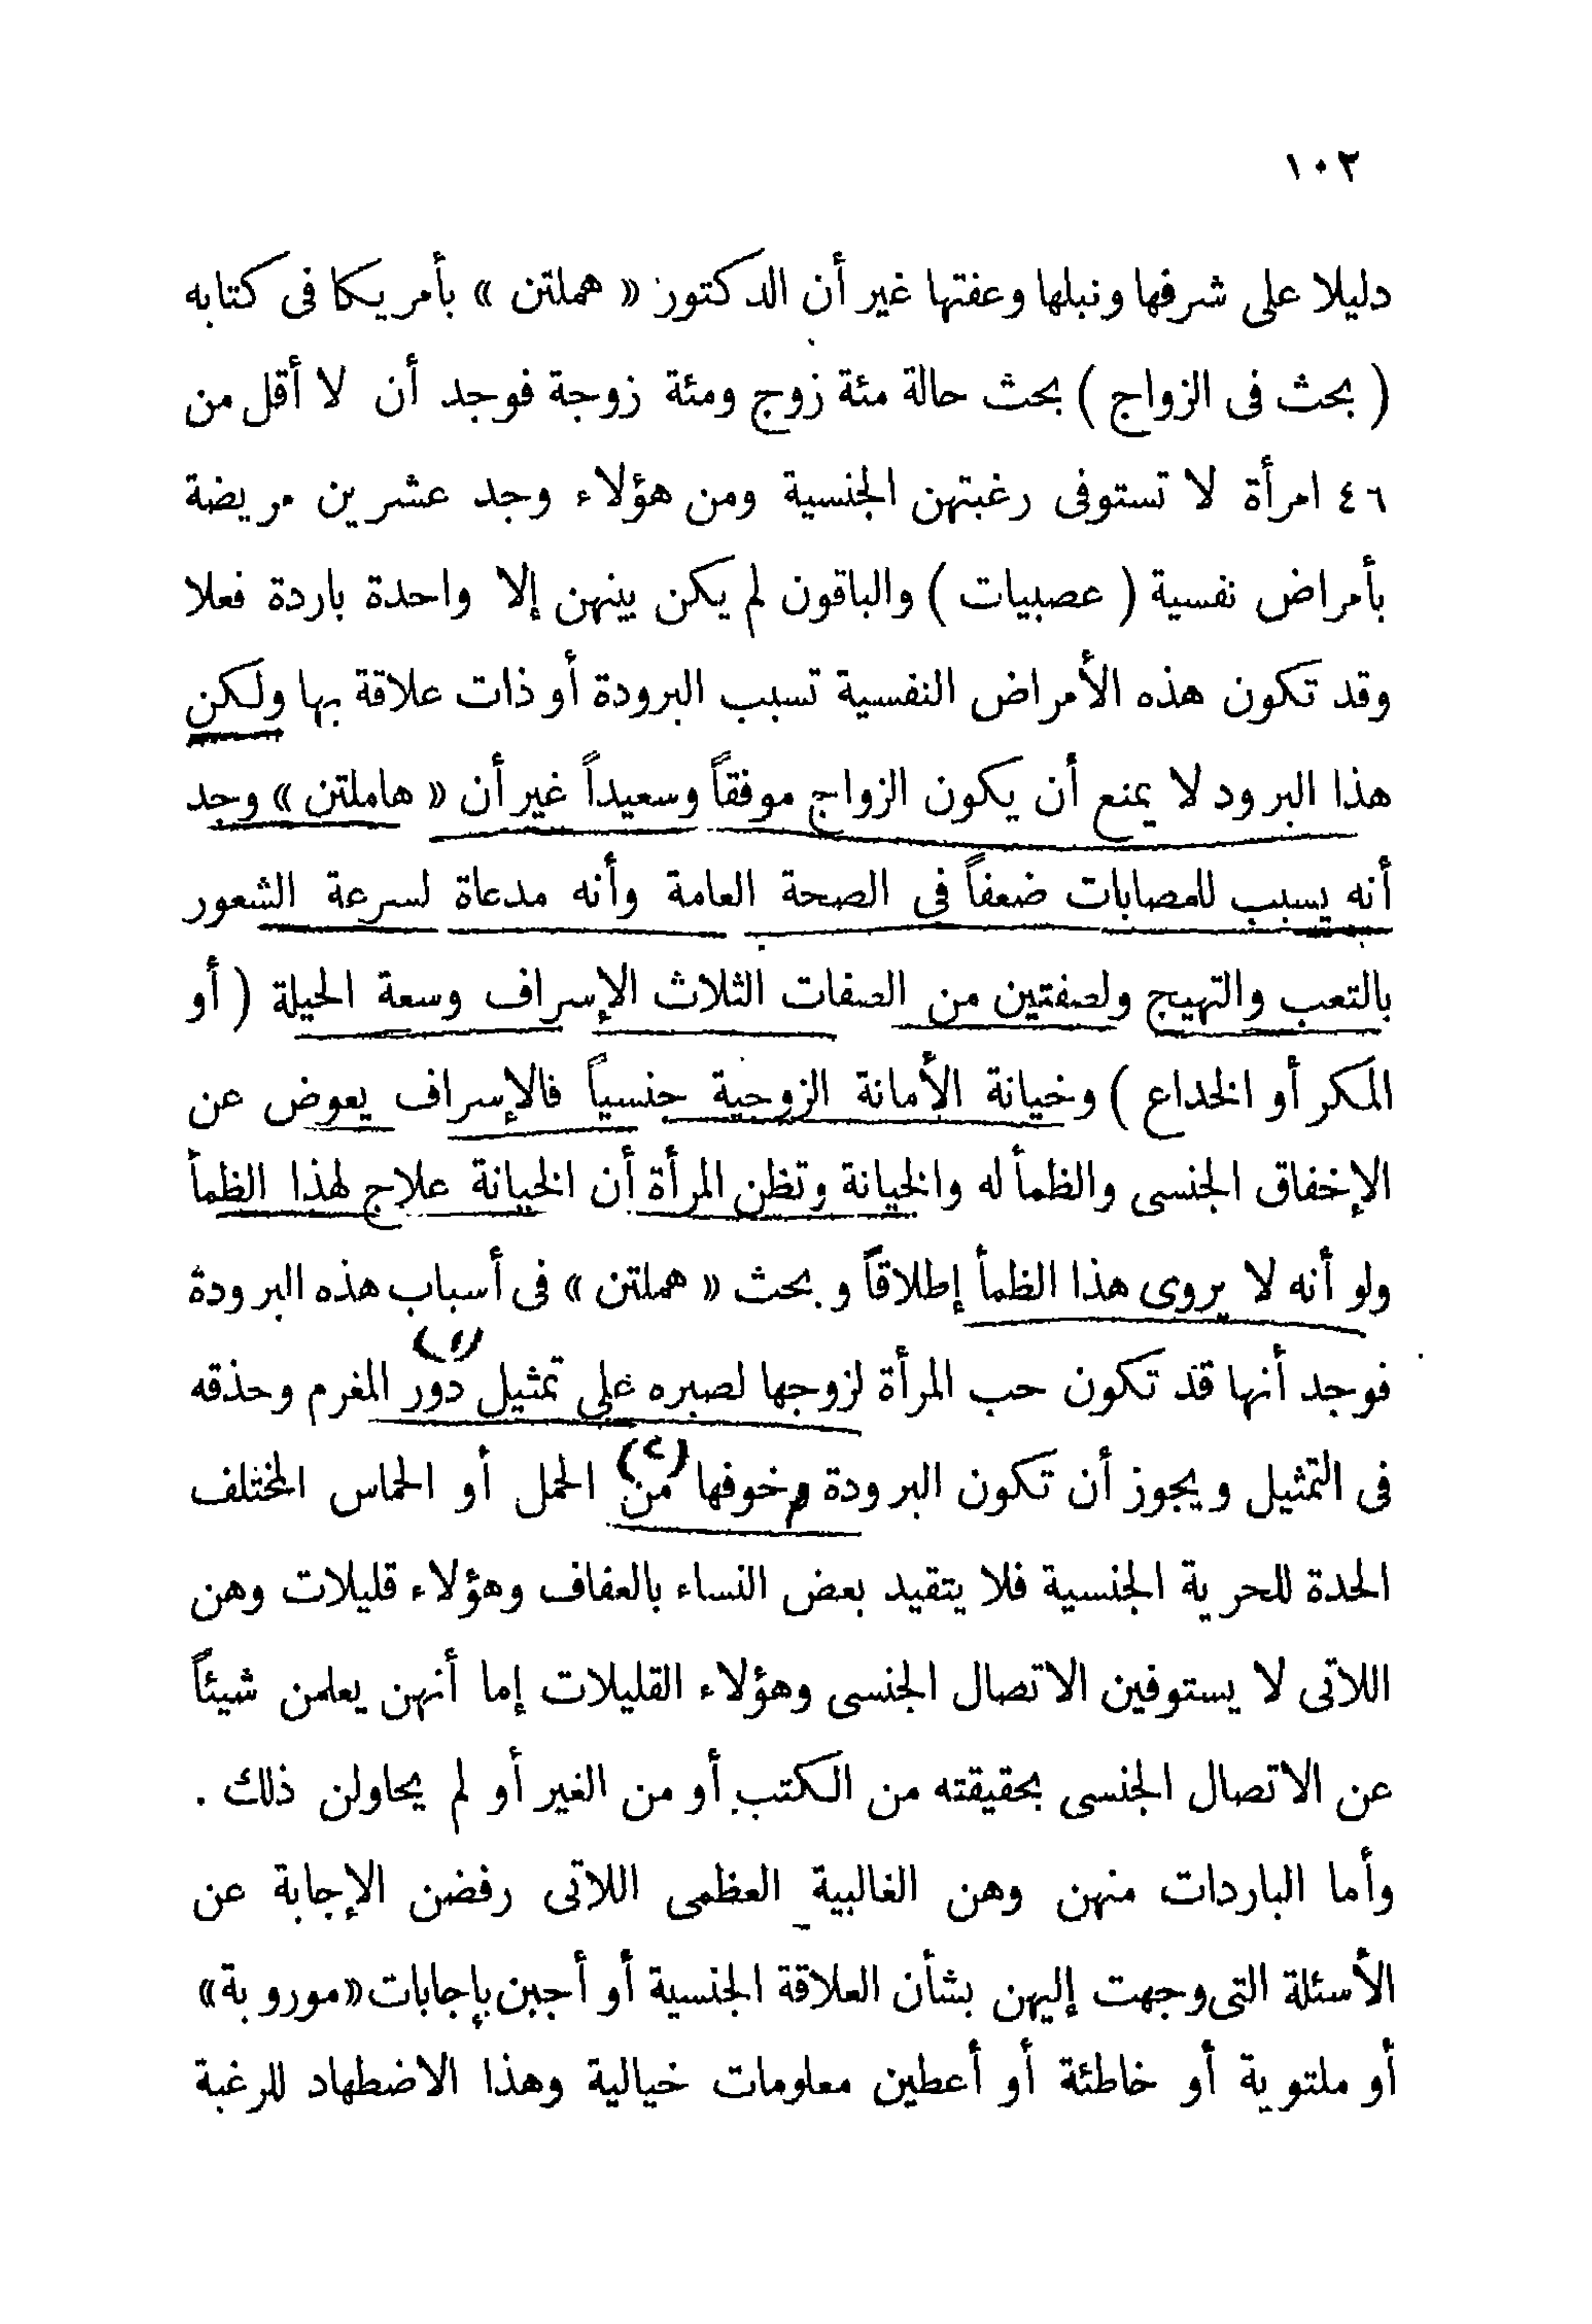 ١٠٣
دليلا على شرفها ونبلها وعفتها غير أن الدكتور « هملتن » بأمريكا فى كتابه
( بحث فى الزواج ) بحث حالة مئة زوج ومئة زوجة فوجد أن لا أقل من
٤٦ امرأة لا تستوفى رغبتهن الجنسية ومن هؤلاء وجد عشرين مريضة
بأمراض نفسية ( عصبيات ) والباقون لم يكن بينهن إلا واحدة باردة فعلا
وقد تكون هذه الأمراض النفسية تسبب البرودة أو ذات علاقة بها ولكن
هذا البرود لا يمنع أن يكون الزواج موفقاً وسعيداً غير أن « هاملتن » وجد
أنه يسبب للمصابات ضعفاً فى الصحة العامة وأنه مدعاة لسرعة الشعور
بالتعب والتهيج ولصفتين من الصفات الثلاث الإسراف وسعة الحيلة ( أو
المكر أو الخداع ) وخيانة الأمانة الزوجية جنسياً فالإسراف يعوض عن
الإخفاق الجنسى والظمأ له والخيانة وتظن المرأة أن الخيانة علاج لهذا الظمأ
ولو أنه لا يروى هذا الظمأ إطلاقاً وبحث « هملتن » فى أسباب هذه البرودة
(١)
فوجد أنها قد تكون حب المرأة لزوجها لصبره على تمثيل دور المغرم وحذقه
(٢)
فى التمثيل ويجوز أن تكون البرودة وخوفها من الحمل أو الحماس المختلف
الحدة للحرية الجنسية فلا يتقيد بعض النساء بالعفاف وهؤلاء قليلات وهن
اللاتى لا يستوفين الاتصال الجنسى وهؤلاء القليلات إما أنهن يعلمن شيئاً
عن الاتصال الجنسى بحقيقته من الكتب أو من الغير أو لم يحاولن ذلك .
وأما الباردات منهن وهن الغالبية العظمى اللاتى رفضن الإجابة عن
الأسئلة التى وجهت إليهن بشأن العلاقة الجنسية أو أجبن بإجابات «موروبة»
أو ملتوية أو خاطئة أو أعطين معلومات خيالية وهذا الاضطهاد للرغبة